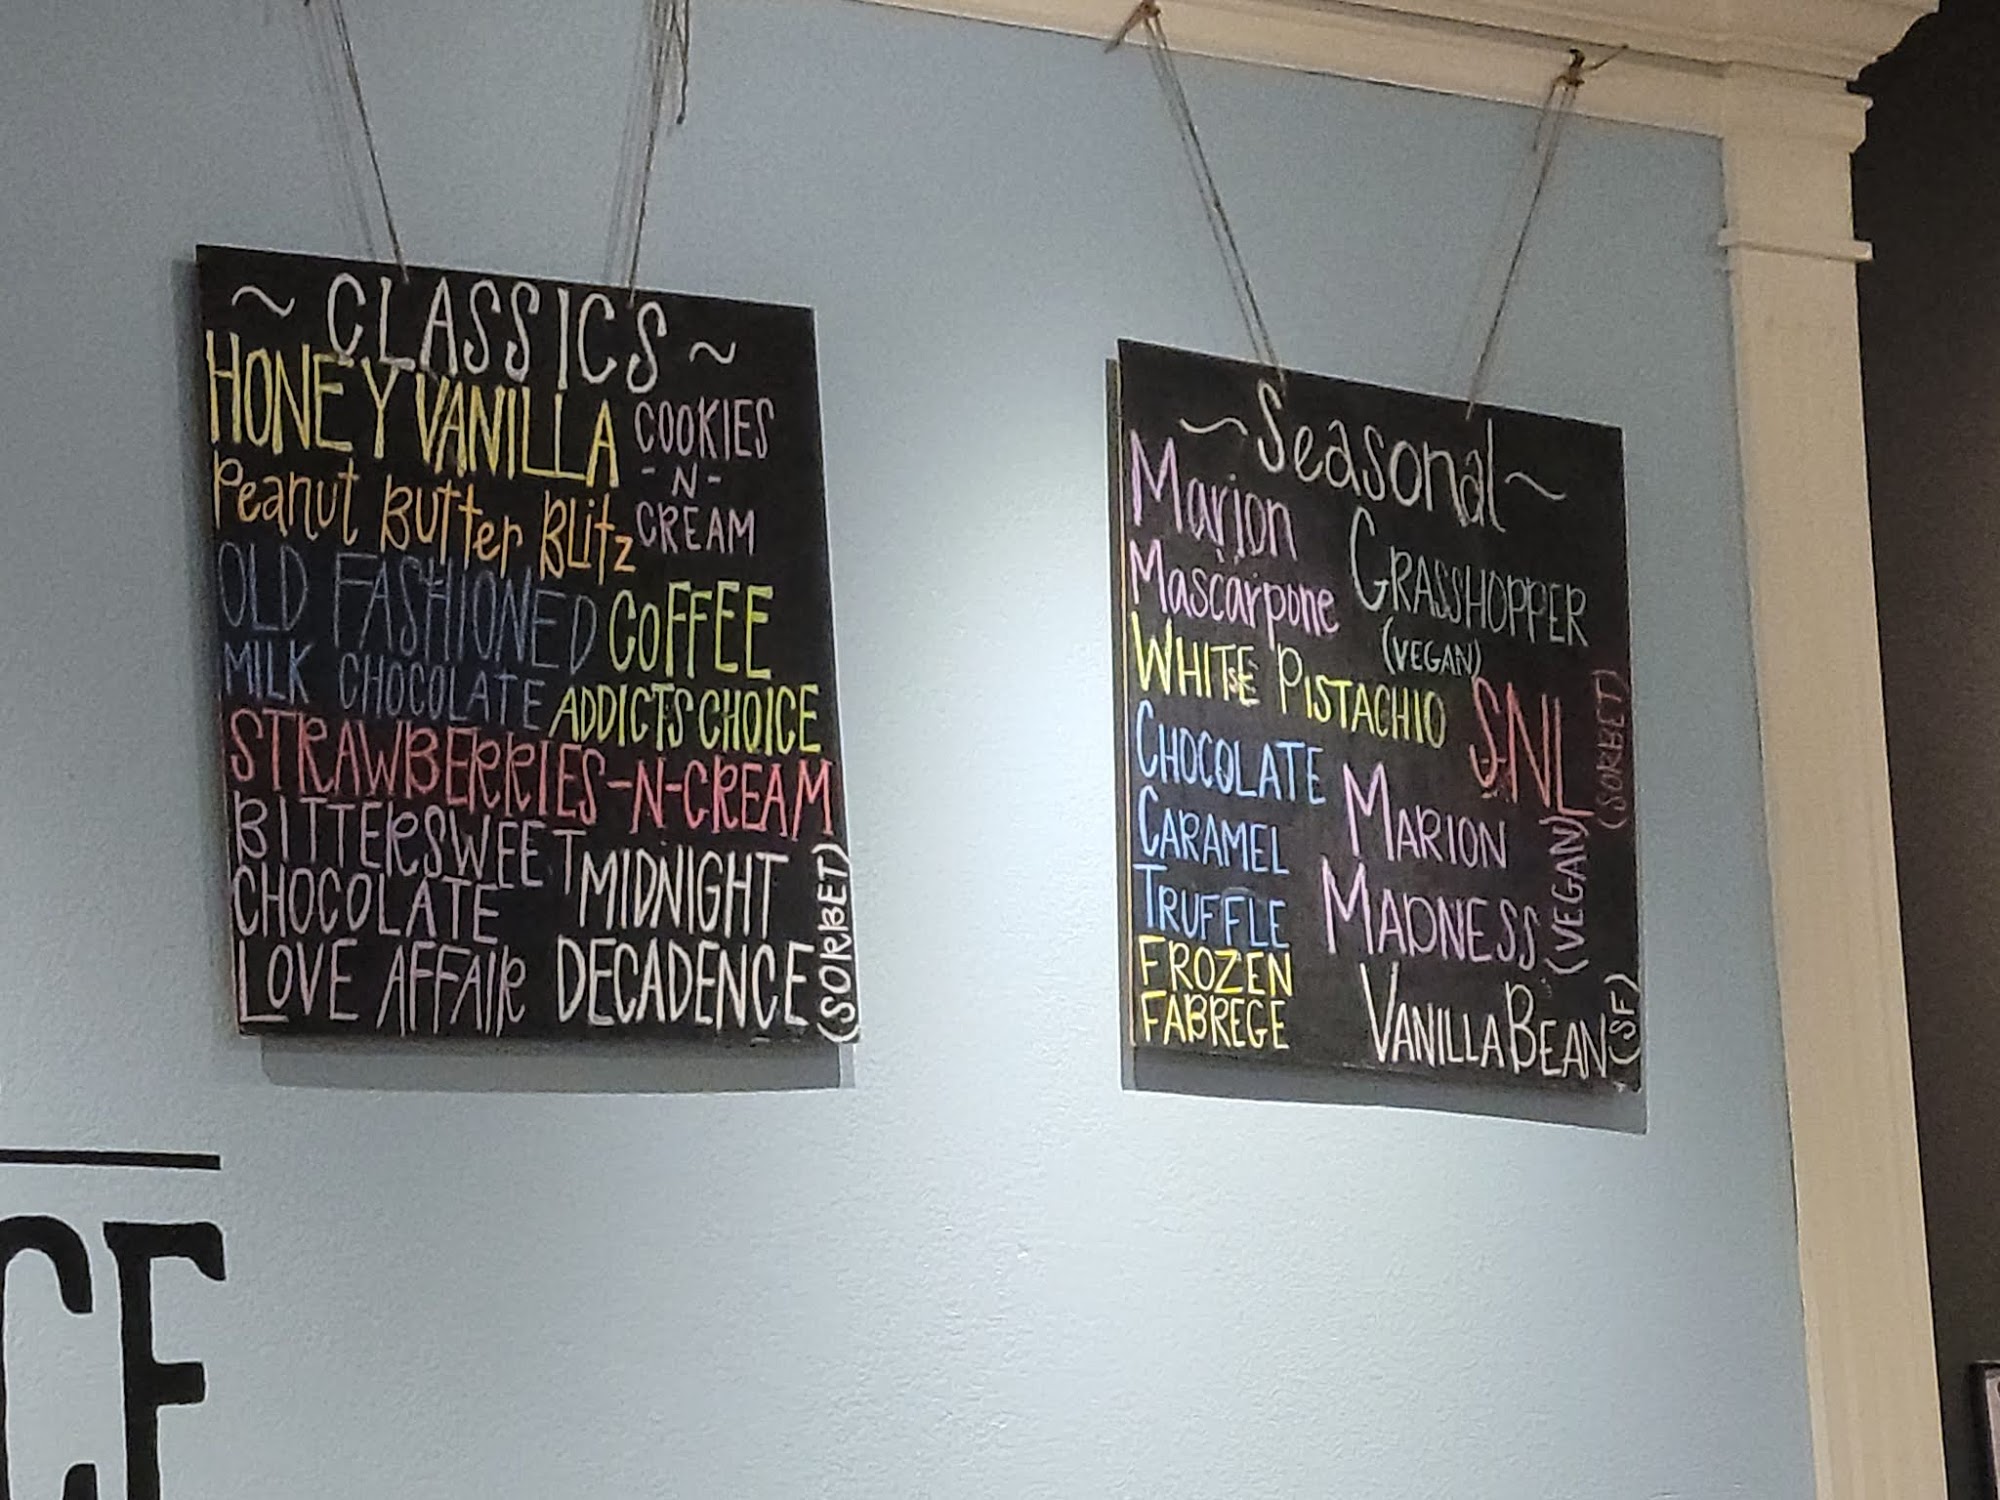 ~ CLASSICS ~
HONEY VANILLA
COOKIES
-N-
CREAM
Peanut Butter Blitz
OLD FASHIONED
MILK CHOCOLATE
COFFEE
ADDICTS CHOICE
STRAWBERRIES-N-CREAM
BITTERSWEET
CHOCOLATE
LOVE AFFAIR
MIDNIGHT
DECADENCE
(SORBET)
~Seasonal~
Marion
Mascarpone
GRASSHOPPER
(VEGAN)
WHITE PISTACHIO
SNL
(SORBET)
CHOCOLATE
CARAMEL
TRUFFLE
MARION
MADNESS
(VEGAN)
FROZEN
FABREGE
VANILLA BEAN
(SF)
CE